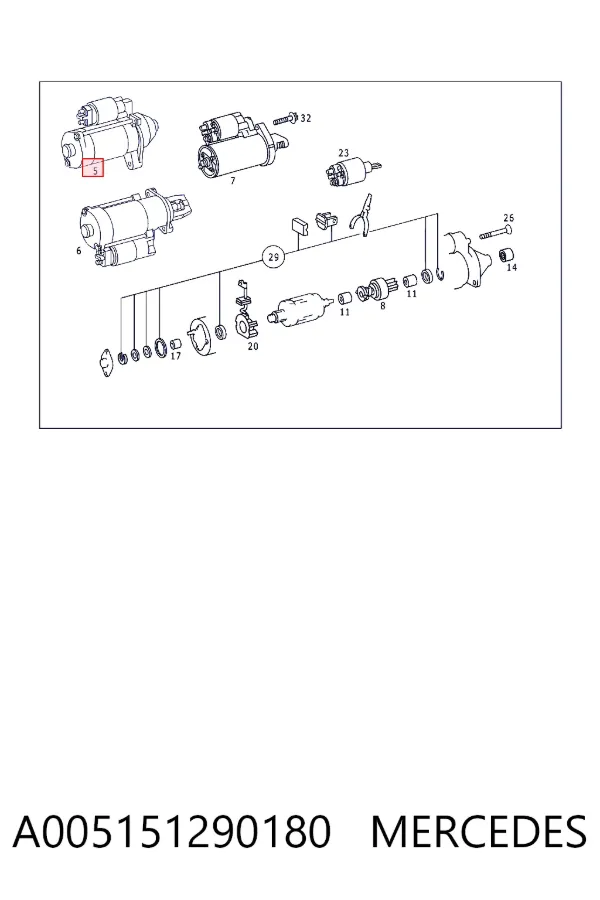 32
5
23
7
26
6
29
14
11
8
11
17
20
A005151290180 MERCEDES